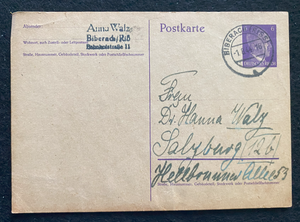 Absender:
Anna Walz
Biberach/Riß
Bahnhofstraße 11
Wohnort, auch Zustell- oder Leitpostamt
Straße, Hausnummer, Gebäudeteil, Stockwerk oder Postschließfachnummer
Postkarte
BIBERACH
Frau
Dr. Hanna Walz
Salzburg (12b)
Hellbrunner Allee 53
Straße, Hausnummer, Gebäudeteil, Stockwerk oder Postschließfachnummer